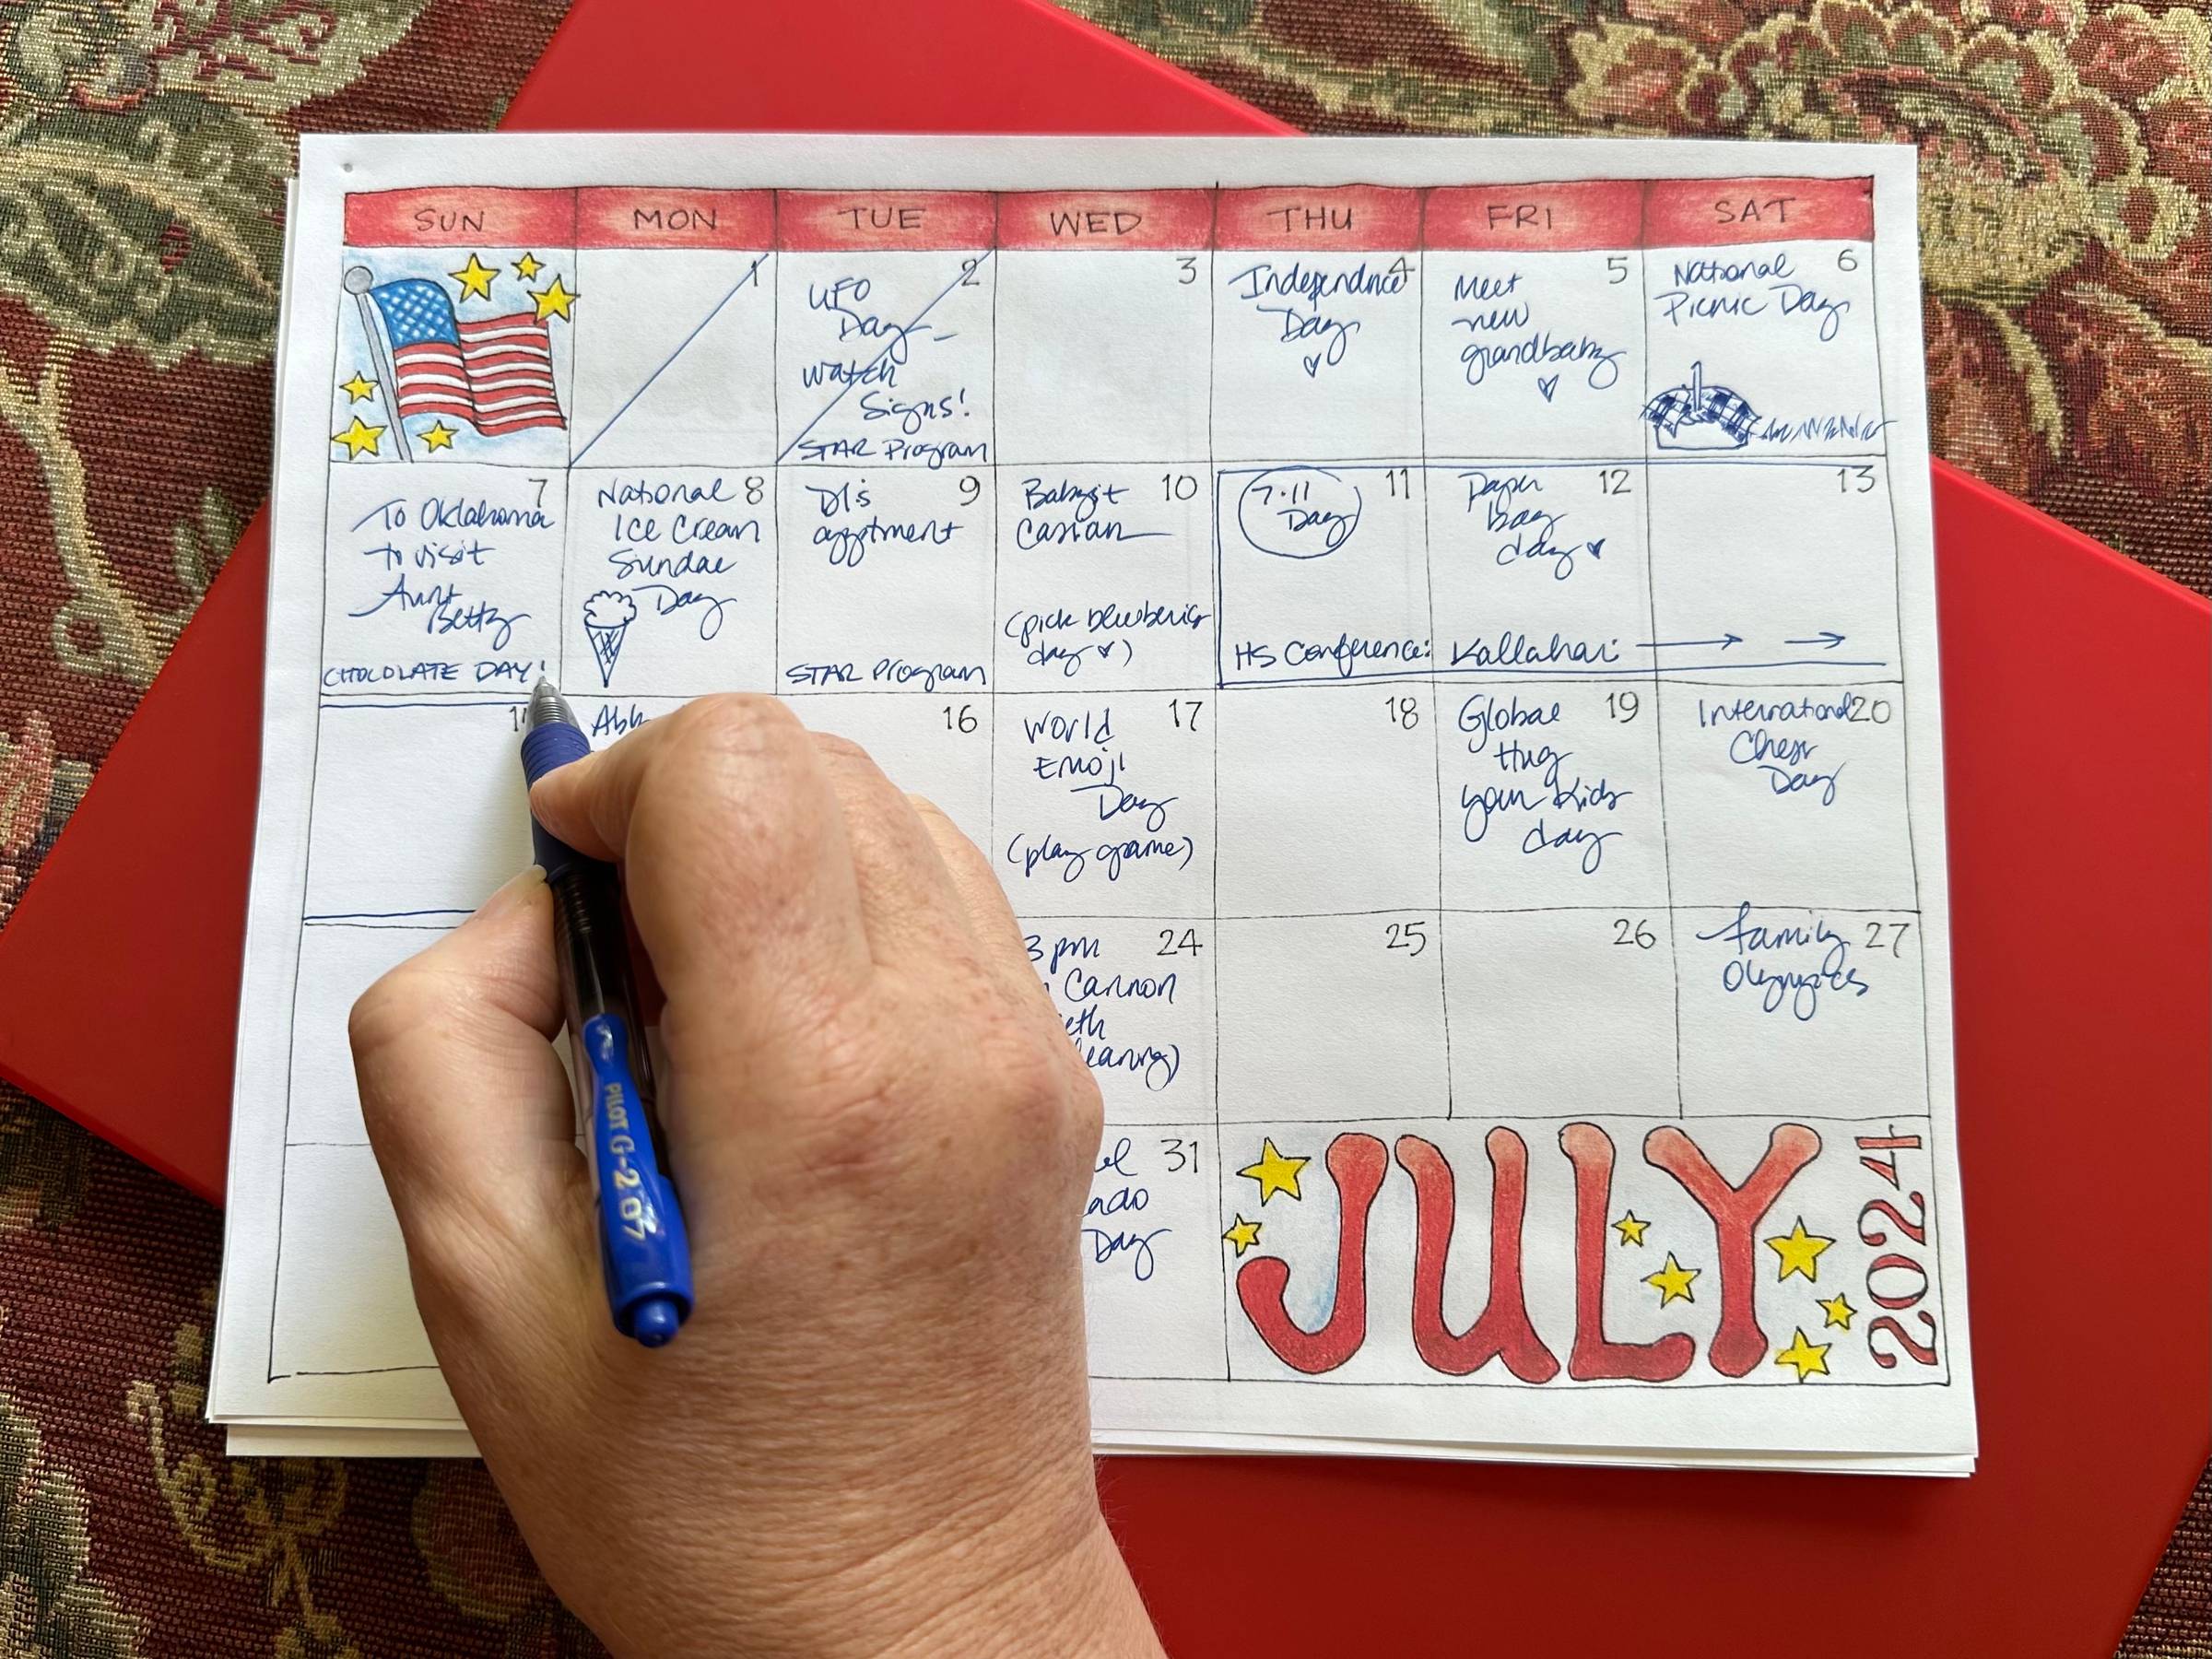 SUN MON TUE WED THU FRI SAT
1
2
UFO
Day
Watch
Signs!
STAR Program
3
4
Independnce
Day
5
Meet
new
grandbaby
6
National
Picnic Day
7
To Oklahoma
to visit
Aunt
Betty
CHOCOLATE DAY!
8
National
Ice Cream
Sundae
Day
9
DI's
apptment
STAR Program
10
Babysit
Casian
(pick blueberries
day)
11
7-11
Day
HS Conference:
12
Paper
Bag
day
Kallahari
13
16
17
World
Emoji
Day
(play game)
18
19
Global
Hug
your Kids
day
20
International
Chess
Day
24
3 pm
Cannon
25
26
27
Family
Olympics
31
Day
JULY
2024
PILOT G-2 07